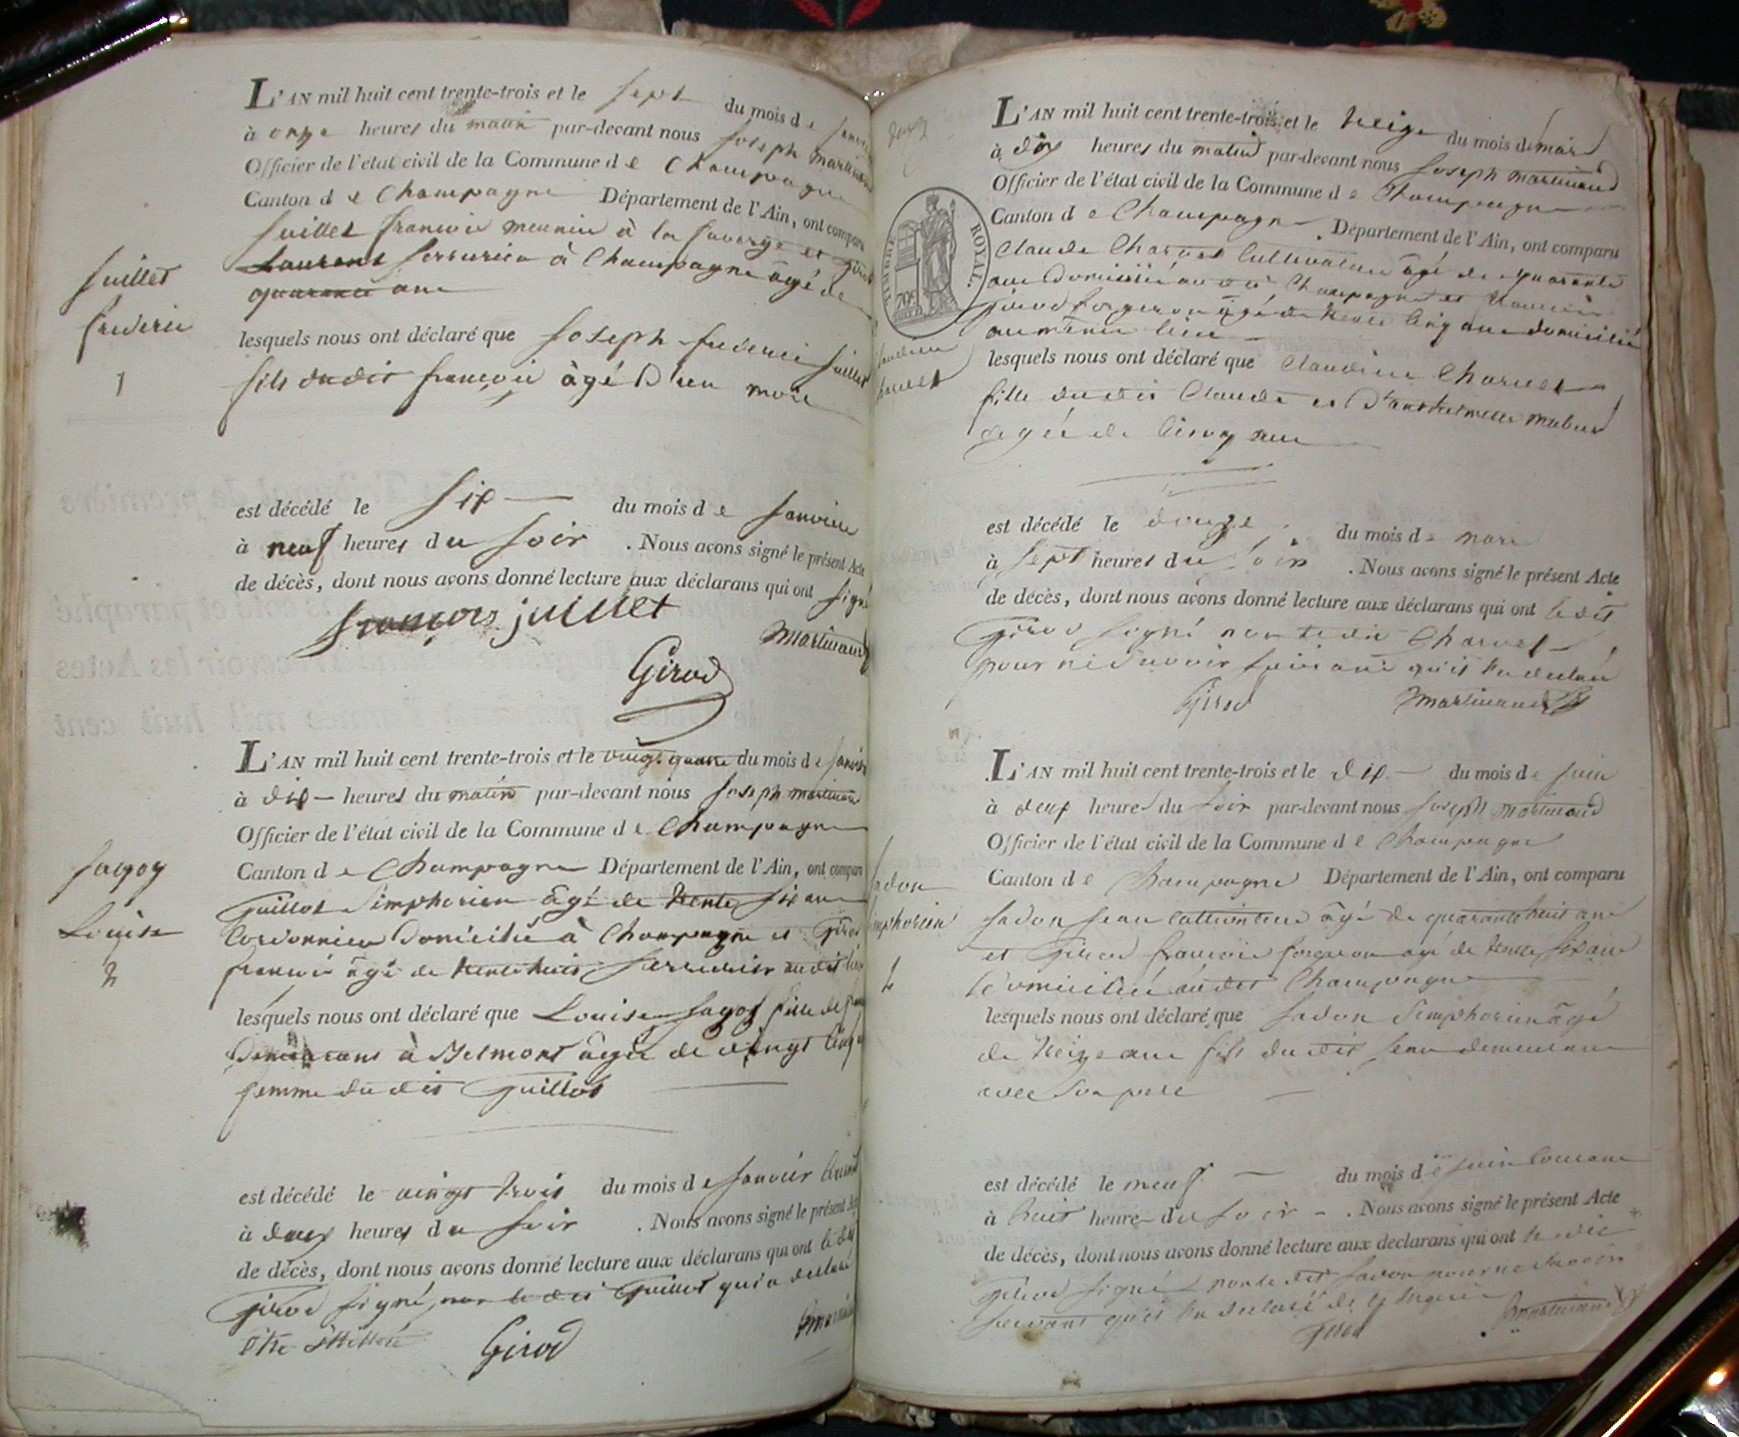 L'AN mil huit cent trente-trois et le sept du mois de janvier
à onze heures du matin par-devant nous Joseph martinand
Officier de l'état civil de la Commune de Champagne
Canton de Champagne Département de l'Ain, ont comparu
Juillet francois meunier à la
Laurent Serrurier à Champagne âgé de
quarante ans
Juillet
frederic
1
lesquels nous ont déclaré que Joseph frederic Juillet
fils dudit françois âgé D'un mois
est décédé le six du mois de Janvier
à neuf heures du soir . Nous avons signé le présent Acte
de décès, dont nous avons donné lecture aux déclarans qui ont signé
françois juillet
Martinand
Girod
L'AN mil huit cent trente-trois et le vingt quatre du mois de janvier
à dix heures du matin par-devant nous Joseph martinand
Officier de l'état civil de la Commune de Champagne
Canton de Champagne Département de l'Ain, ont comparu
Guillot Simphorien âgé de trente six ans
Cordonnier Domicilié à Champagne et Girod
francois âgé de trente huit Serrurier audit lieu
Louise
2
lesquels nous ont déclaré que Louise fille de
Demeurant à Belmont âgée de vingt cinq
femme du dit Guillot
est décédé le vingt trois du mois de Janvier
à deux heures du soir . Nous avons signé le présent Acte
de décès, dont nous avons donné lecture aux déclarans qui ont le dit
Girod signé, non le dit Guillot qui a declaré
être illitéré
Girod
TIMBRE ROYAL.
70c
L'AN mil huit cent trente-trois et le treize du mois de mars
à dix heures du matin par-devant nous Joseph martinand
Officier de l'état civil de la Commune de Champagne
Canton de Champagne . Département de l'Ain, ont comparu
Claude Charvet Cultivateur âgé de quarante
ans Domicilié Champagne et francois
girod forgeron âgé de trente cinq ans domicilié
au même lieu
lesquels nous ont déclaré que Claudine Charvet
fille du dit Claude et D'anthelmette
agée de Cinq ans
est décédé le douze du mois de mars
à sept heures du soir . Nous avons signé le présent Acte
de décès, dont nous avons donné lecture aux déclarans qui ont le dit
Girod signé non le dit Charvet
pour ne savoir qu'il l'a declaré
Girod Martinand
L'AN mil huit cent trente-trois et le dix du mois de juin
à deux heures du soir par-devant nous Joseph martinand
Officier de l'état civil de la Commune de Champagne
Canton de Champagne Département de l'Ain, ont comparu
Jean Cultivateur âgé de quarante huit ans
et Girod francois forgeron agé de trente six ans
Domicilié au dit Champagne
lesquels nous ont déclaré que Simphorien âgé
de treize ans fils du dit Jean demeurant
avec son pere
est décédé le neuf du mois de juin courant
à huit heures du soir . Nous avons signé le présent Acte
de décès, dont nous avons donné lecture aux déclarans qui ont le dit
Girod signé non le dit pour ne savoir
qu'il l'a declaré
Girod Martinand